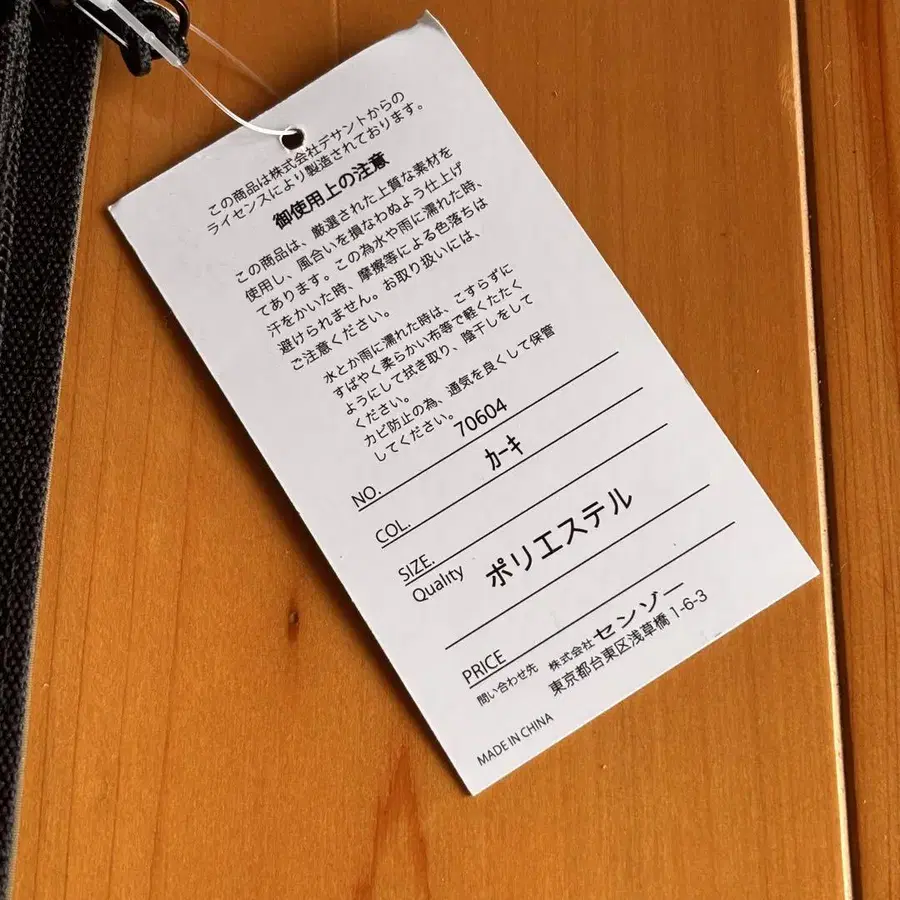 この商品は株式会社デサントからの
ライセンスにより製造されております。
御使用上の注意
この商品は、厳選された上質な素材を
使用し、風合いを損なわぬよう仕上げ
てあります。この為水や雨に濡れた時、
汗をかいた時、摩擦等による色落ちは
避けられません。お取り扱いには、
ご注意ください。
水とか雨に濡れた時は、こすらずに
すばやく柔らかい布等で軽くたたく
ようにして拭き取り、陰干しをして
ください。
カビ防止の為、通気を良くして保管
してください。
NO. 70604
COL. カーキ
SIZE.
Quality ポリエステル
PRICE
問い合わせ先 株式会社センゾー
東京都台東区浅草橋1-6-3
MADE IN CHINA